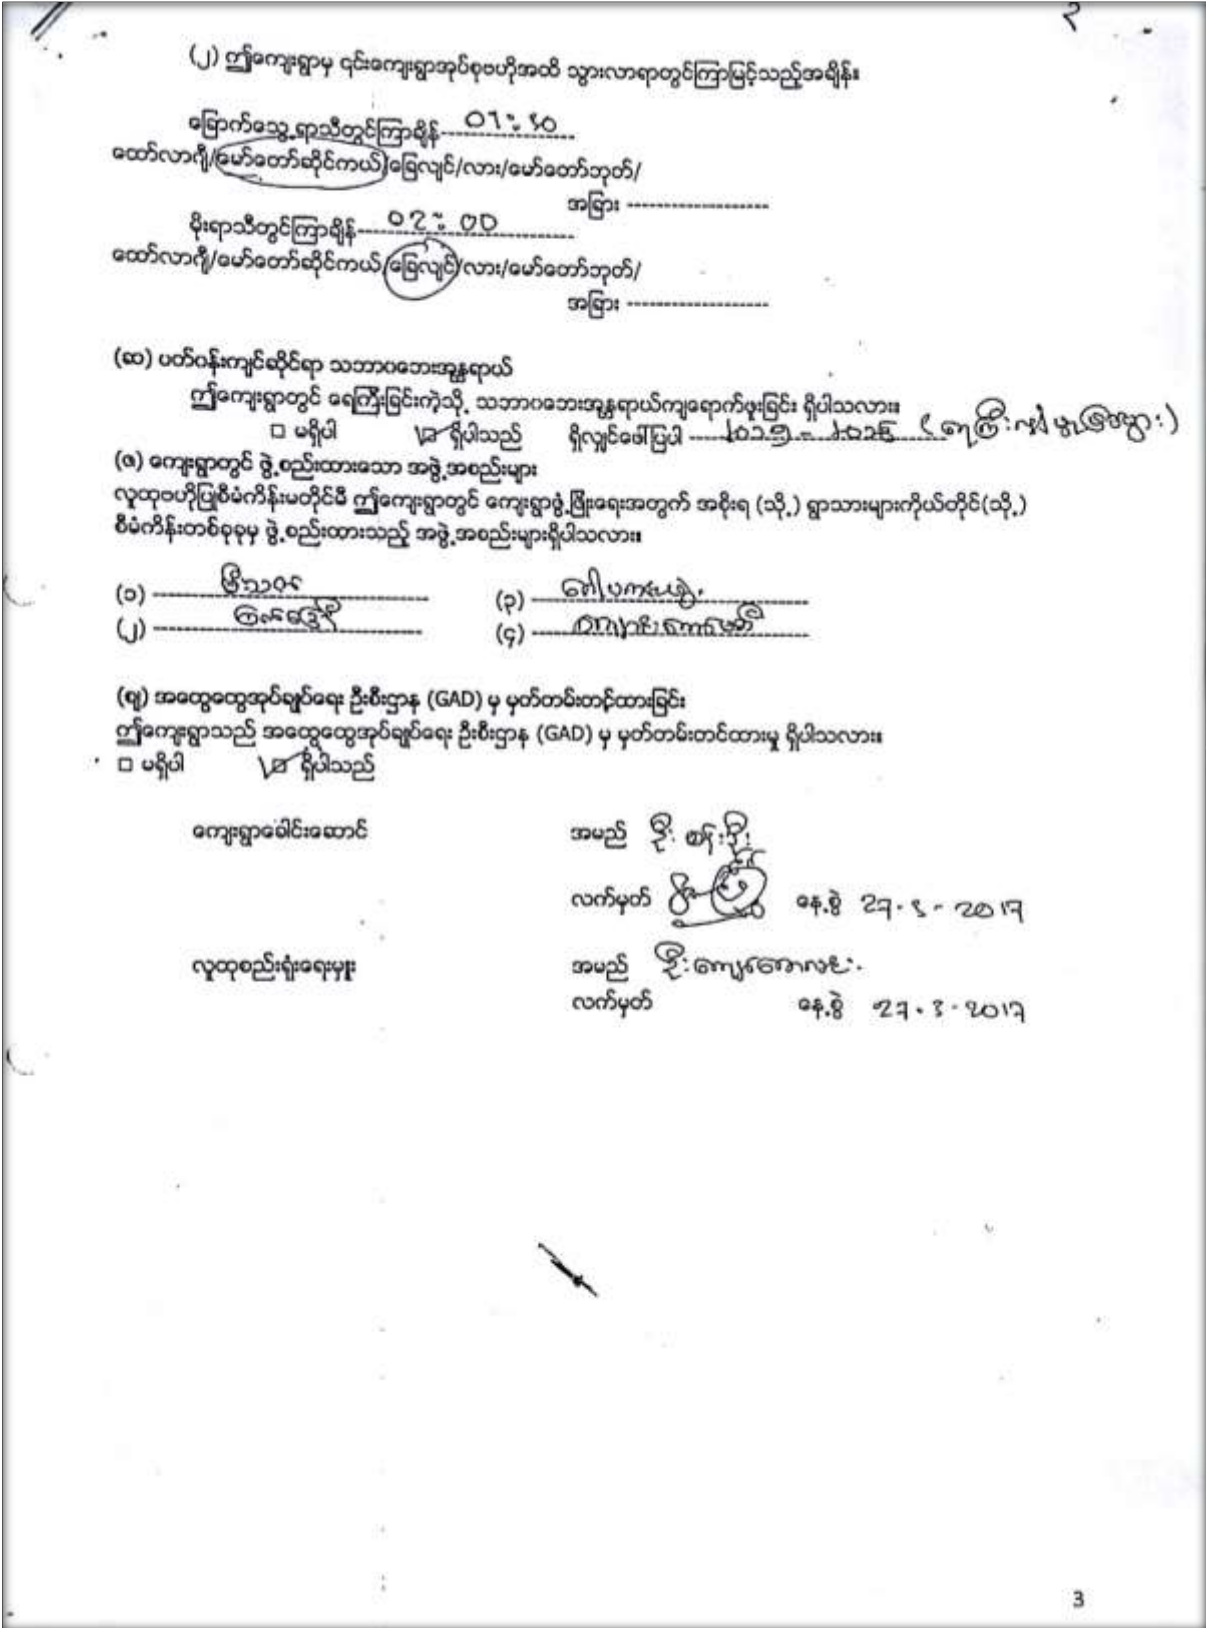 (၂) ဤကျေးရွာမှ ၎င်းကျေးရွာအုပ်စုဗဟိုအထိ သွားလာရာတွင်ကြာမြင့်သည့်အချိန်။
ခြောက်သွေ့ရာသီတွင်ကြာချိန် 01:30
ထော်လာဂျီ/မော်တော်ဆိုင်ကယ်/ခြေလျင်/လား/မော်တော်ဘုတ်/
အခြား
မိုးရာသီတွင်ကြာချိန် 02:00
ထော်လာဂျီ/မော်တော်ဆိုင်ကယ်/ခြေလျင်/လား/မော်တော်ဘုတ်/
အခြား
(ဆ) ပတ်ဝန်းကျင်ဆိုင်ရာ သဘာဝဘေးအန္တရာယ်
ဤကျေးရွာတွင် ရေကြီးခြင်းကဲ့သို့ သဘာဝဘေးအန္တရာယ်ကျရောက်ဖူးခြင်း ရှိပါသလား။
□ မရှိပါ □ ရှိပါသည် ရှိလျှင်ဖော်ပြပါ
(ဇ) ကျေးရွာတွင် ဖွဲ့စည်းထားသော အဖွဲ့အစည်းများ
လူထုဗဟိုပြုစီမံကိန်းမတိုင်မီ ဤကျေးရွာတွင် ကျေးရွာဖွံ့ဖြိုးရေးအတွက် အစိုးရ (သို့) ရွာသားများကိုယ်တိုင်(သို့)
စီမံကိန်းတစ်ခုခုမှ ဖွဲ့စည်းထားသည့် အဖွဲ့အစည်းများရှိပါသလား။
(၁) မီးသတ် (၃)
(၂) ကြက်ခြေနီ (၄)
(ဈ) အထွေထွေအုပ်ချုပ်ရေး ဦးစီးဌာန (GAD) မှ မှတ်တမ်းတင့်ထားခြင်း
ဤကျေးရွာသည် အထွေထွေအုပ်ချုပ်ရေး ဦးစီးဌာန (GAD) မှ မှတ်တမ်းတင်ထားမှု ရှိပါသလား။
□ မရှိပါ □ ရှိပါသည်
ကျေးရွာခေါင်းဆောင် အမည် ဦး
လက်မှတ် နေ့စွဲ 27-3-2017
လူထုစည်းရုံးရေးမှူး အမည် ဦး
လက်မှတ် နေ့စွဲ 27-3-2017
3